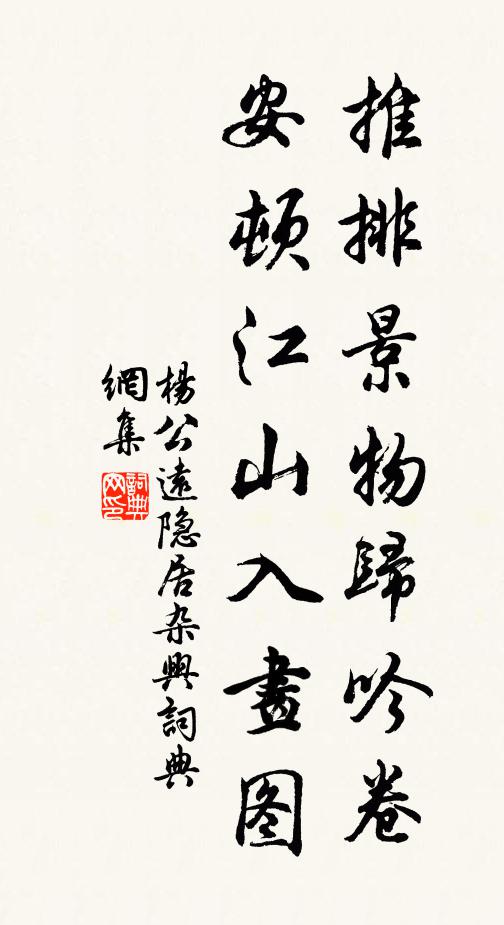 推排景物歸吟卷
安頓江山入畫图
楊公遠隐居杂興詞典
網集
詞典
网印